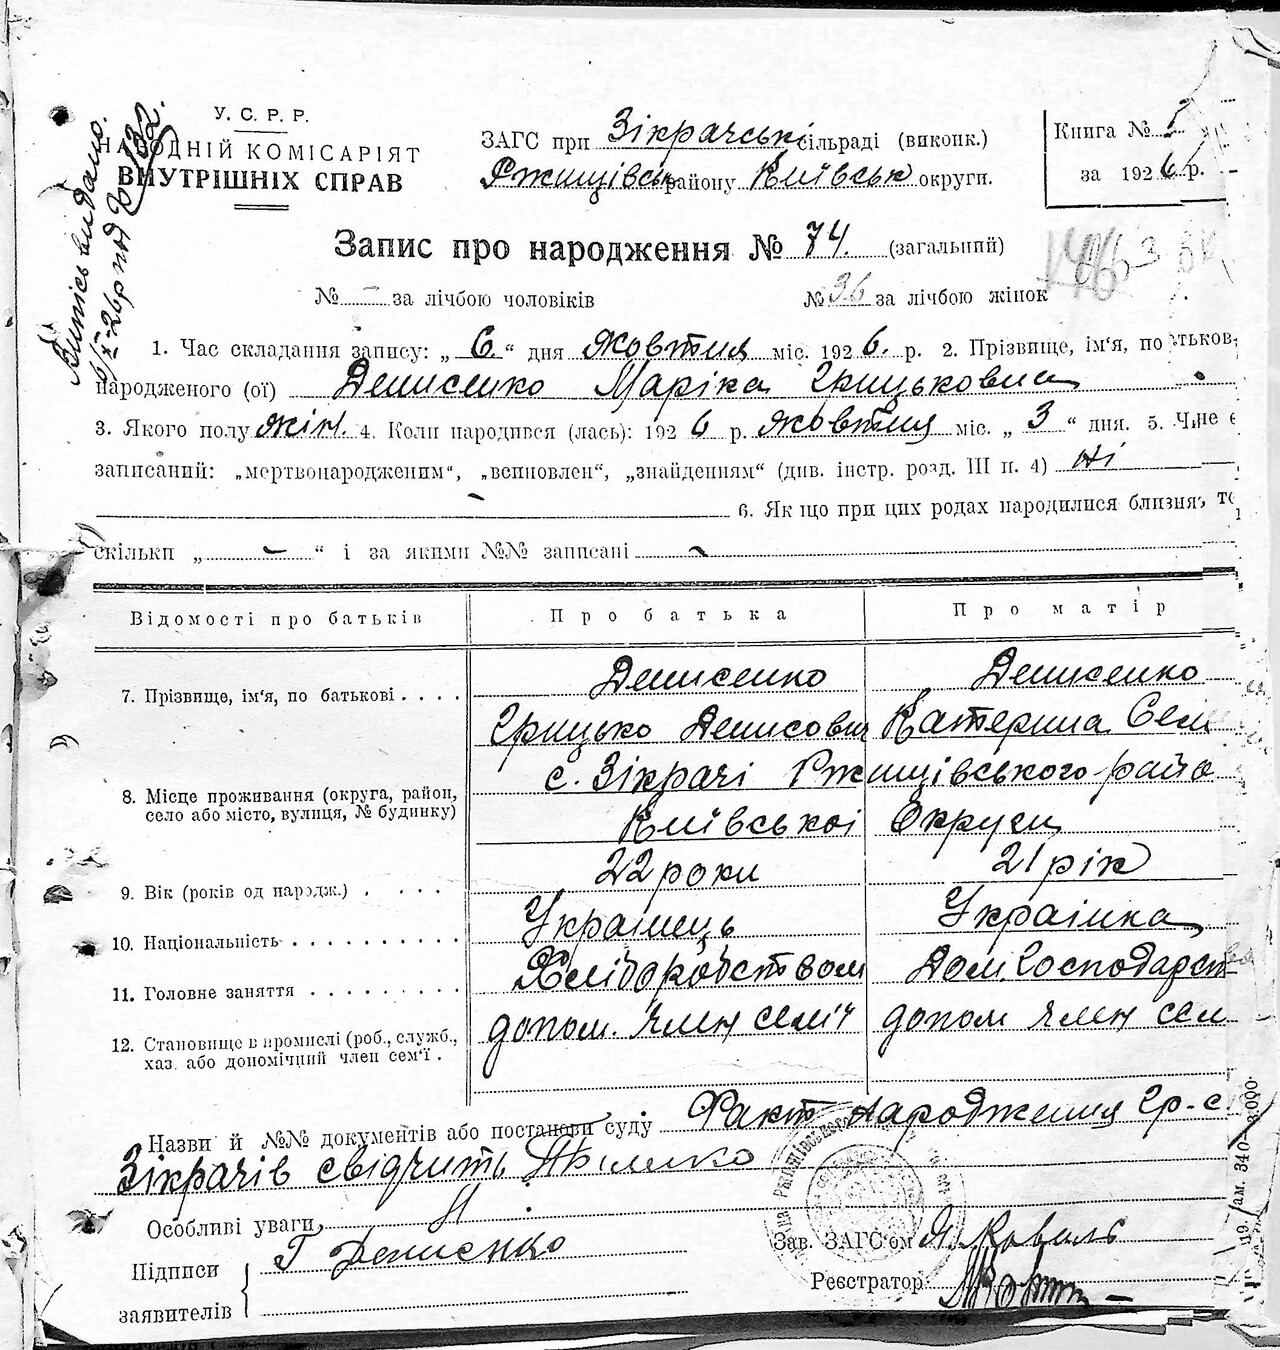 У. С. Р. Р.
НАРОДНІЙ КОМІСАРІЯТ
ВНУТРІШНІХ СПРАВ
Випісь видано.
6/X-26р под № 132.
ЗАГС при Зікрачські сільраді (виконк.)
Ржищівськ району Київськ округи.
Книга № 1
за 1926 р.
Запис про народження № 74. (загальний)
№ - за лічбою чоловіків № 36 за лічбою жінок
1. Час складання запису: „ 6 “ дня жовтня міс. 1926. р. 2. Прізвище, ім'я, по батьков.
народженого (ої) Денисенко Маріка Грицьковна
3. Якого полу жін. 4. Коли народився (лась): 1926 р. жовтня міс. „ 3 “ дня. 5. Чи не є
записаний: „мертвонародженим“, „всиновлен“, „знайденням“ (див. інстр. розд. III п. 4) Ні
6. Як що при цих родах народилися близня, то
скільки „ - “ і за якими №№ записані -
Відомості про батьків Про батька Про матір
7. Прізвище, ім'я, по батькові . . . . Денисенко Денисенко
Грицько Денисович Катерина Сем
8. Місце проживання (округа, район, село або місто, вулиця, № будинку) с. Зікрачі Ржищівського райо
Київської Округи
9. Вік (років од народж.) . . . . 22 роки 21 рік
10. Національність . . . . . . . . . . Українець Українка
11. Головне заняття . . . . . . . . Хліборобством Дом. Господарст
12. Становище в промислі (роб., служб., хаз. або допомічний член сем'ї . допом. член семіч допом член сем
Назви й №№ документів або постанови суду Факт народження гр. с.
Зікрачів свідчить
Особливі уваги,
Підписи
заявителів
Г Денисенко
Зав. ЗАГС'ом Я. Коваль
Реєстратор